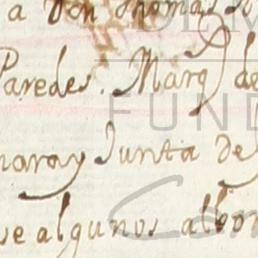 a Don Thomas
Paredes. Marq de
mara y Junta de
se algunos albor